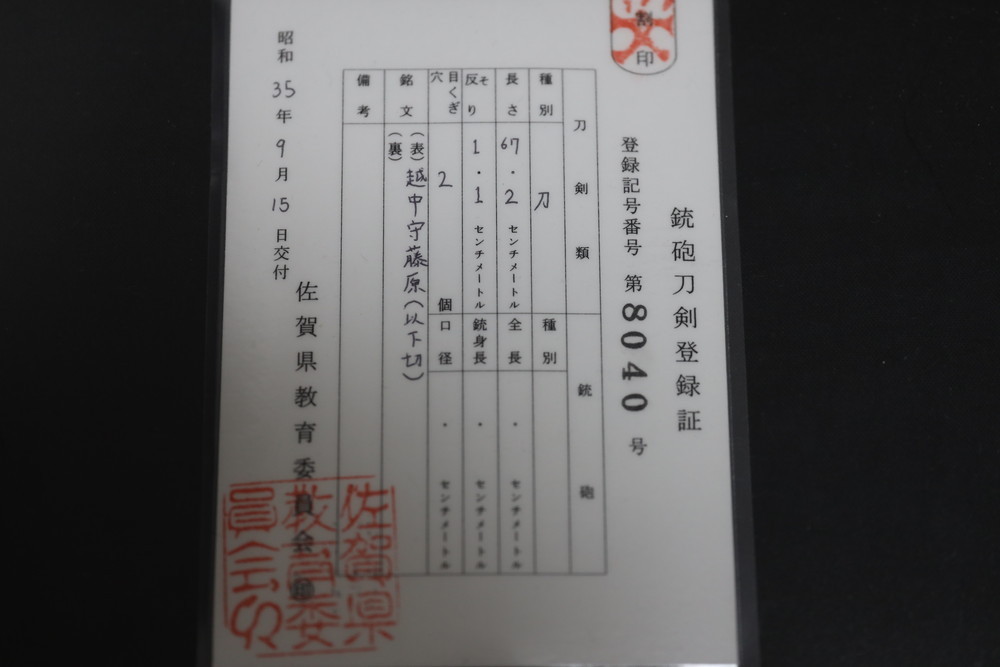 割印
銃砲刀剣登録証
登録記号番号 第8040号
刀剣類
種別 刀
長さ 67.2 センチメートル
そり 反り 1.1 センチメートル
目くぎ穴 2 個
銘文 (表) 越中守藤原(以下切)
(裏)
備考
銃砲
種別
全長 . センチメートル
銃身長 . センチメートル
口径 . センチメートル
昭和35年9月15日交付
佐賀県教育委員会
佐賀県
教育委
員会